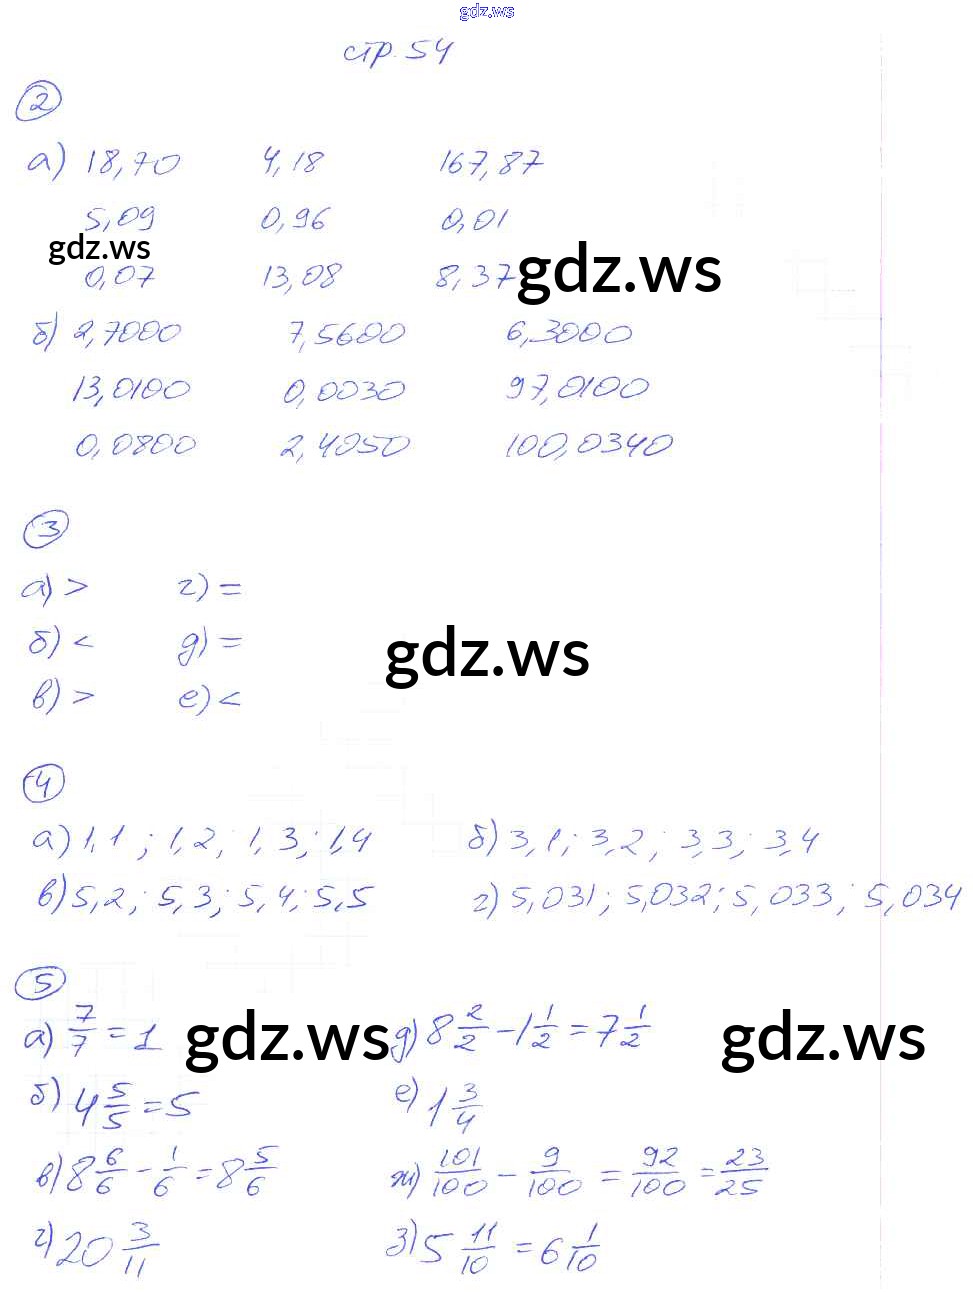 gdz.ws
стр. 54
2
а) 18,70 4,18 167,87
5,09 0,96 0,01
gdz.ws
0,07 13,08 8,37 gdz.ws
б) 2,7000 7,5600 6,3000
13,0100 0,0030 97,0100
0,0800 2,4050 100,0340
3
а) > г) =
б) < д) =
gdz.ws
в) > е) <
4
а) 1,1; 1,2; 1,3; 1,4 б) 3,1; 3,2; 3,3; 3,4
в) 5,2; 5,3; 5,4; 5,5 г) 5,031; 5,032; 5,033; 5,034
5
а) 7/7 = 1 gdz.ws д) 8 2/2 - 1 1/2 = 7 1/2 gdz.ws
б) 4 5/5 = 5 е) 1 3/4
в) 8 6/6 - 1/6 = 8 5/6 ж) 101/100 - 9/100 = 92/100 = 23/25
г) 20 3/11 з) 5 11/10 = 6 1/10